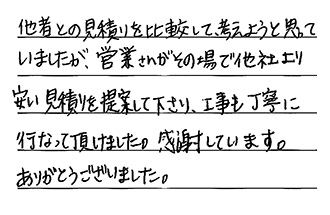 他者との見積りを比較して、考えようと思って
いましたが、営業さんがその場で他社より
安い見積りを提案して下さり、工事も丁寧に
行なって頂けました。感謝しています。
ありがとうございました。